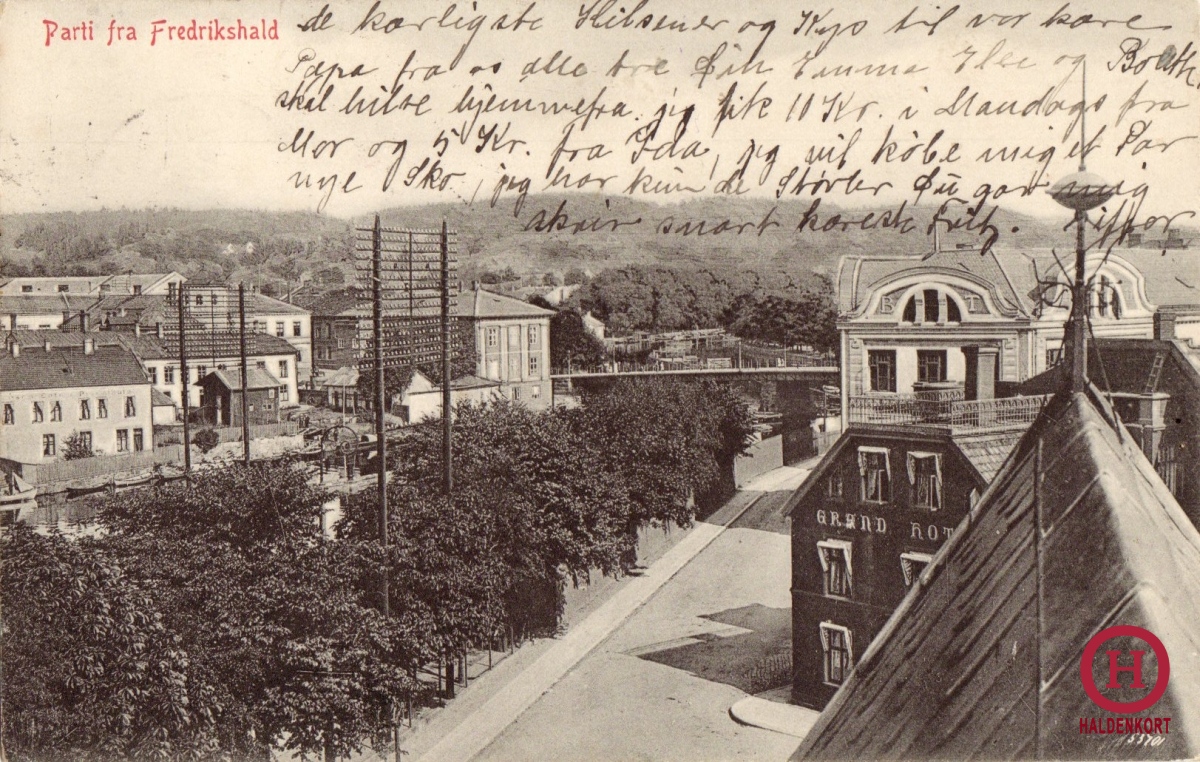 Parti fra Fredrikshald
de kærligste Hilsener og Kys til vor kære
Papa fra os alle tre Din Emma Else og Bolette
skal hilse hjemmefra. jeg fik 10 Kr. i Mandags fra
Mor og 5 Kr. fra Ida, jeg vil købe mig et Par
nye Sko, jeg har kun de Støvler Du gav mig
skriv snart kæreste Fritz.
GRAND HOT
H
HALDENKORT